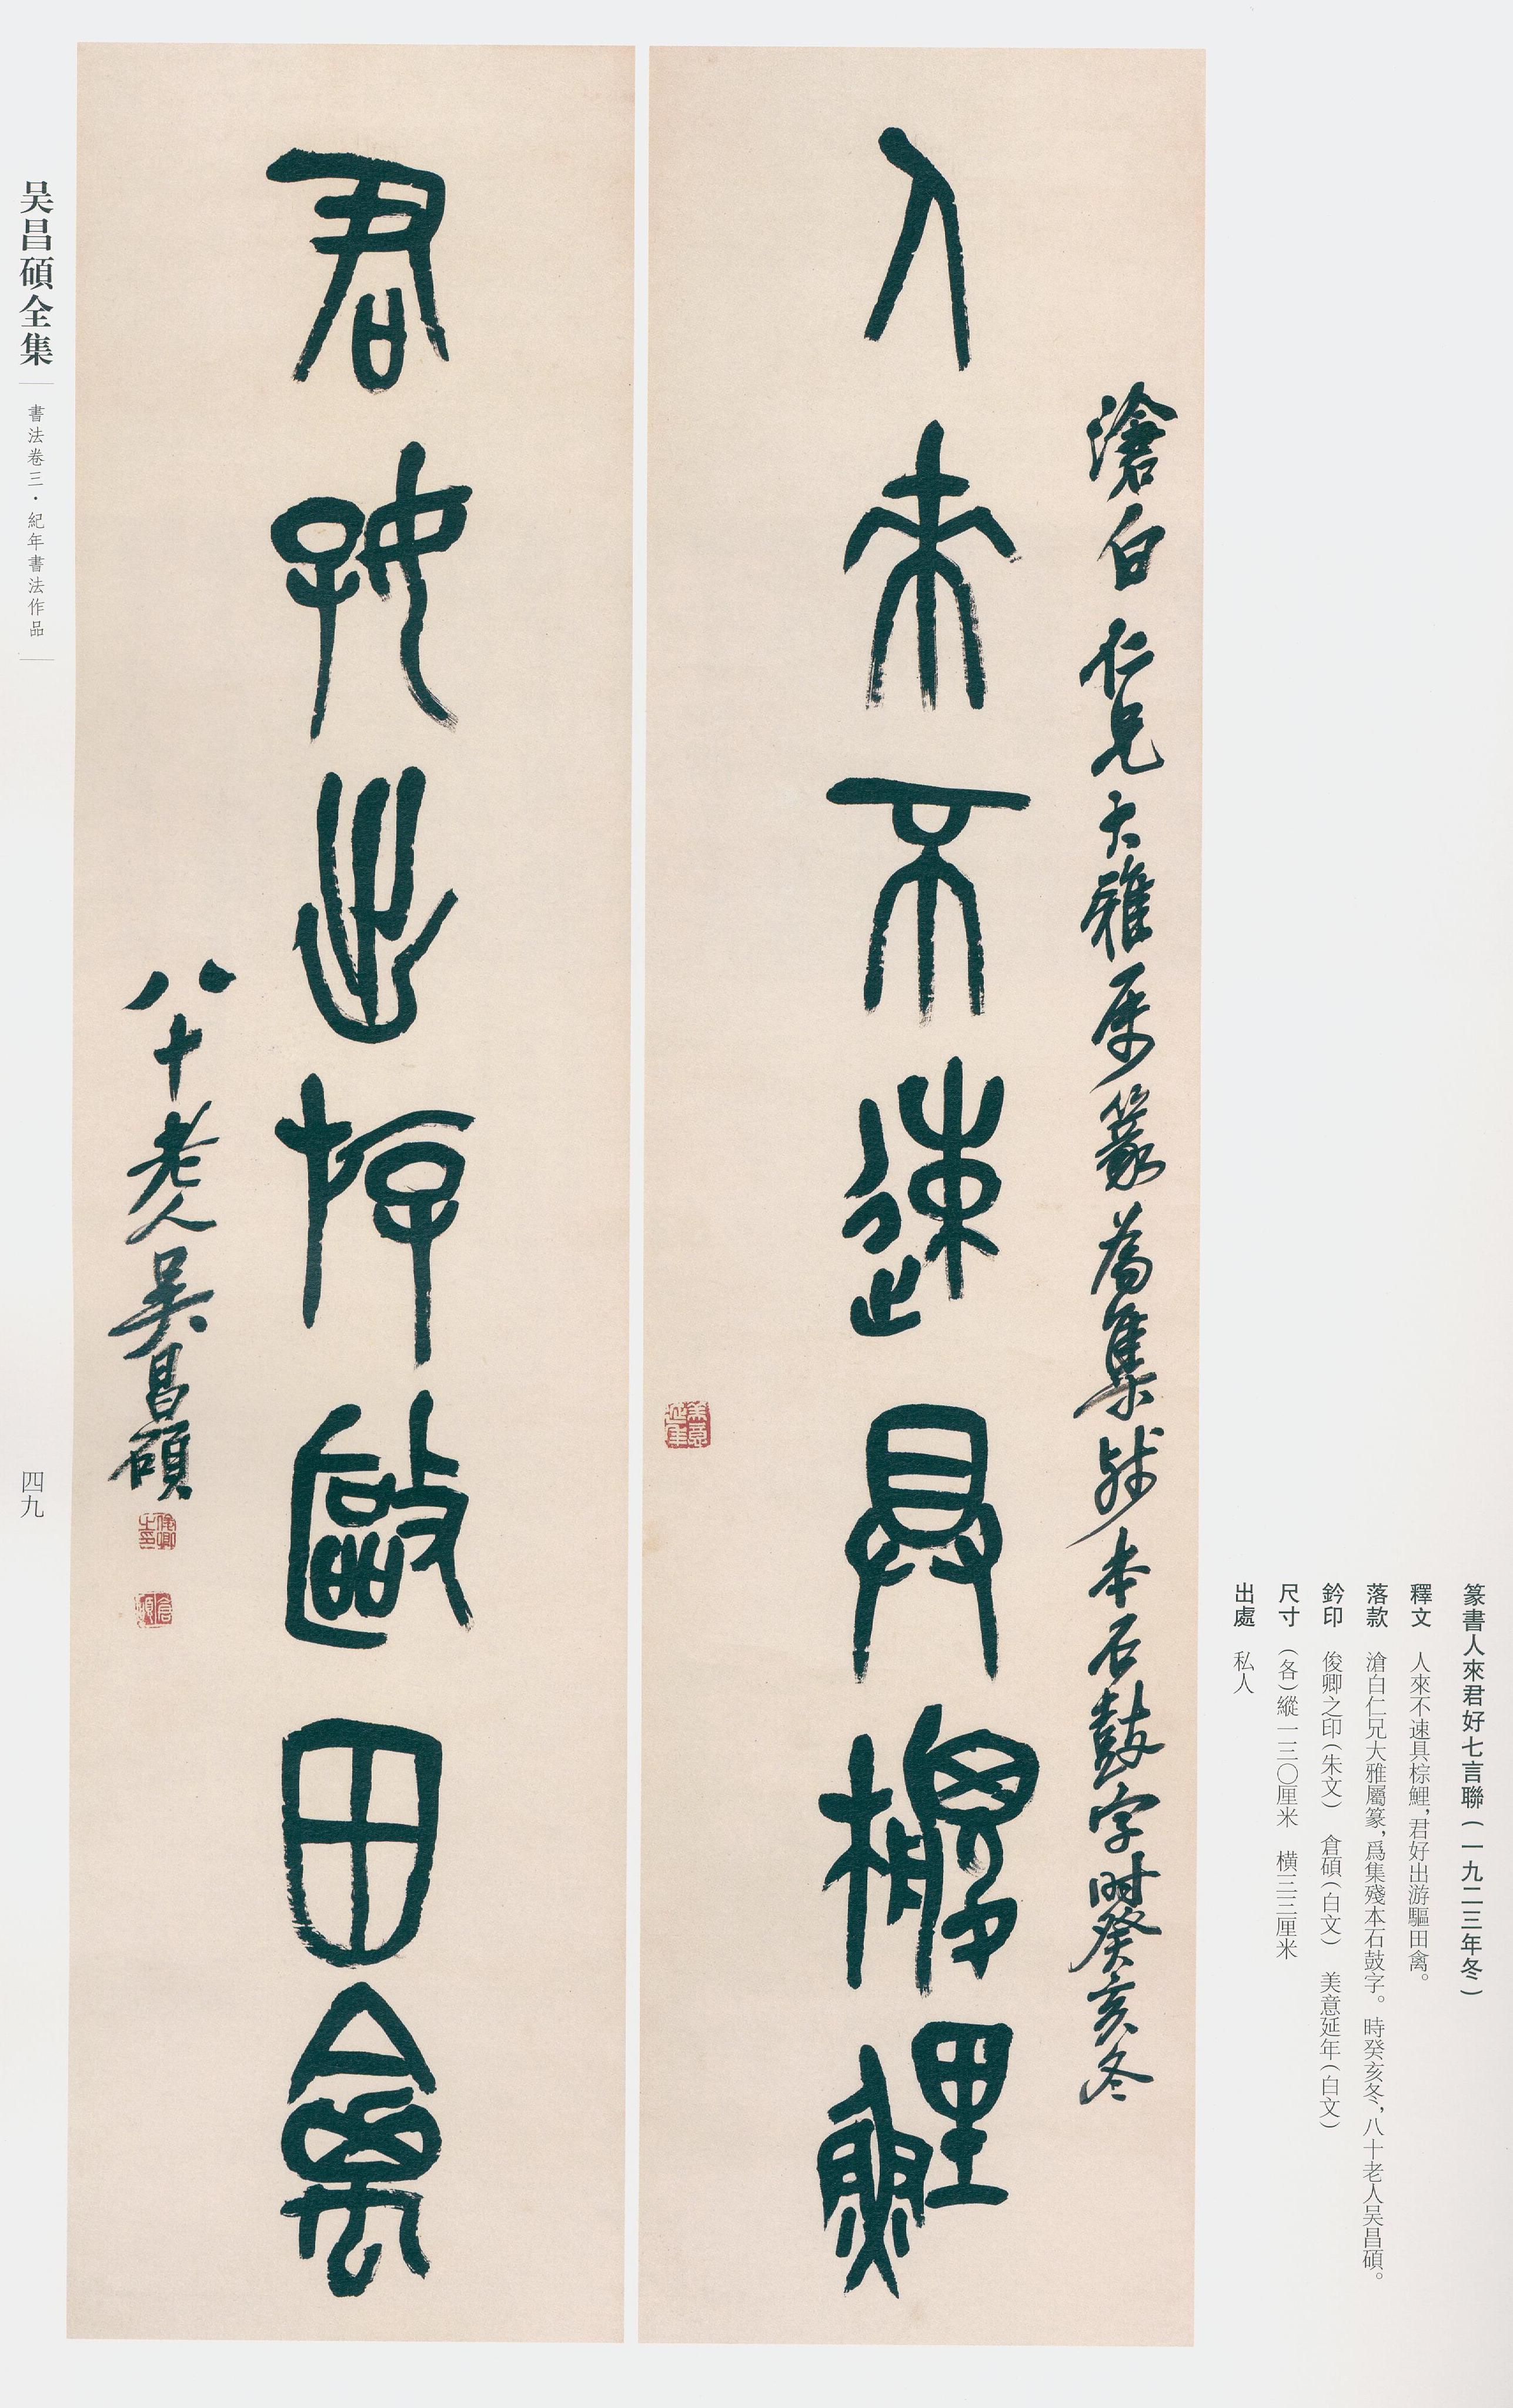 篆書人來君好七言聯(一九二三年冬)
釋文　人來不速具棕鯉,君好出游驅田禽。
落款　滄白仁兄大雅屬篆,爲集殘本石鼓字。時癸亥冬,八十老人吴昌碩。
鈐印　俊卿之印(朱文)　倉碩(白文)　美意延年(白文)
尺寸　(各)縱一三〇厘米　橫三三厘米
出處　私人
滄白仁兄大雅属篆為集殘本石鼓字時癸亥冬
人來不速具棕鯉
美意延年
君好出游驅田禽
八十老人吴昌碩
俊卿之印
倉碩
吴昌碩全集
書法卷三·紀年書法作品
四九